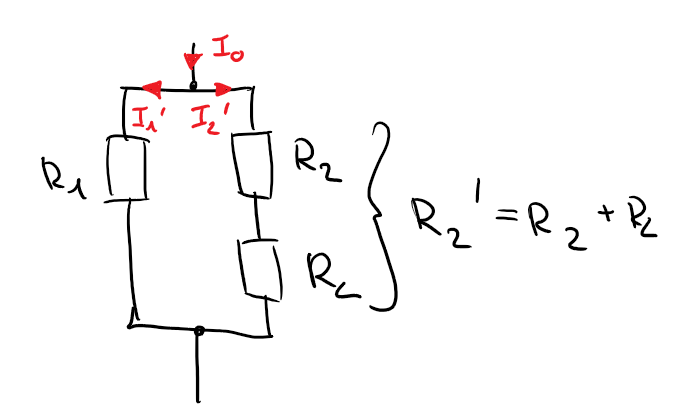 I₀
I₁' I₂'
R₁
R₂
R_L
R₂' = R₂ + R_L